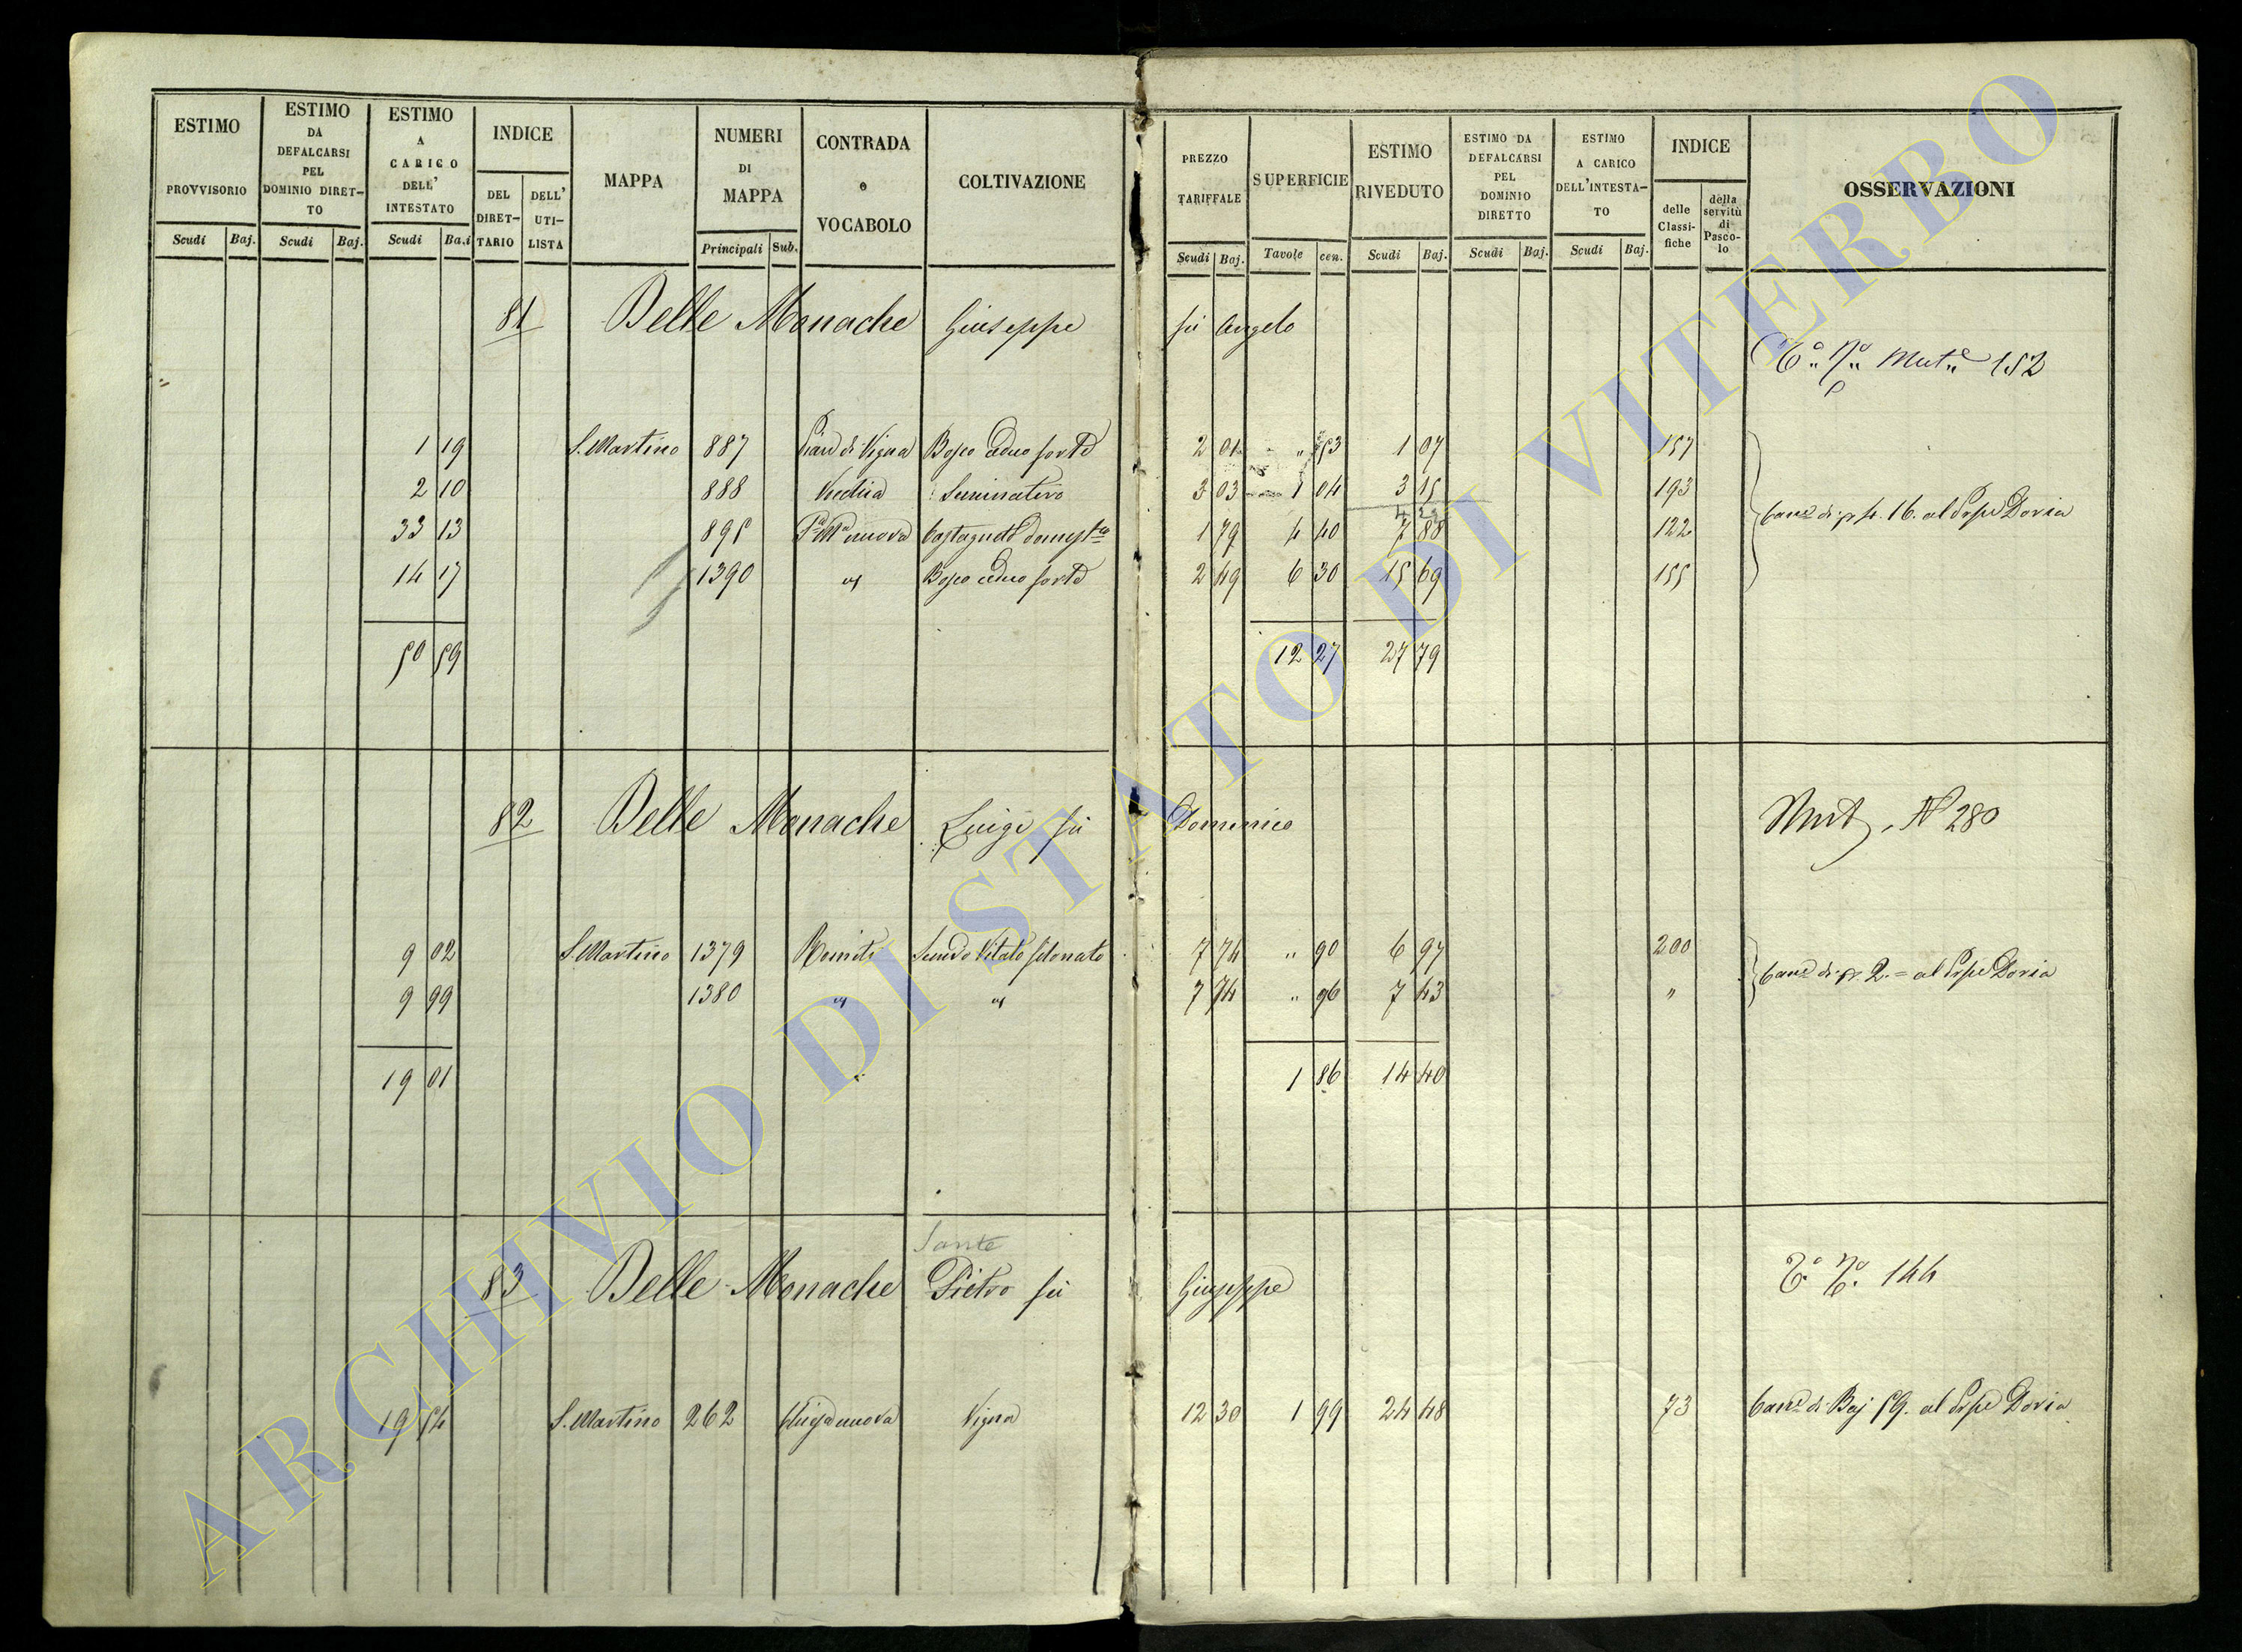 ESTIMO PROVVISORIO
ESTIMO DA DEFALCARSI PEL DOMINIO DIRETTO
ESTIMO A CARICO DELL' INTESTATO
INDICE
DEL DIRETTARIO
DELL' UTILISTA
MAPPA
NUMERI DI MAPPA
CONTRADA o VOCABOLO
COLTIVAZIONE
PREZZO TARIFFALE
SUPERFICIE
ESTIMO RIVEDUTO
ESTIMO DA DEFALCARSI PEL DOMINIO DIRETTO
ESTIMO A CARICO DELL'INTESTATO
INDICE
delle Classifiche
della servitù di Pascolo
OSSERVAZIONI
Scudi Baj. Scudi Baj. Scudi Ba.i Principali Sub. Scudi Baj. Tavole cen. Scudi Baj. Scudi Baj. Scudi Baj.
81 Delle Monache Giuseppe fu Angelo
152
1 19 S. Martino 887 Pian di Vigna Bosco ceduo forte 2 01 " 53 1 07 157
2 10 888 Seminativo 3 03 1 04 3 15 193
33 13 895 nuova Castagneto 1 79 4 40 7 88 122
14 17 1390 Bosco ceduo forte 2 49 6 30 15 69 155
16. al Doria
50 59 12 27 27 79
82 Delle Monache Luigi fu Domenico
Mut. N 280
9 02 S. Martino 1379 Vitato 7 74 " 90 6 97 200
9 99 1380 7 74 " 96 7 43 "
2. = al Doria
19 01 1 86 14 40
Sante
83 Delle Monache Pietro fu Giuseppe
144
19 54 S. Martino 262 Vigna 12 30 1 99 24 48 73 di Baj 59. al Doria
ARCHIVIO DI STATO DI VITERBO